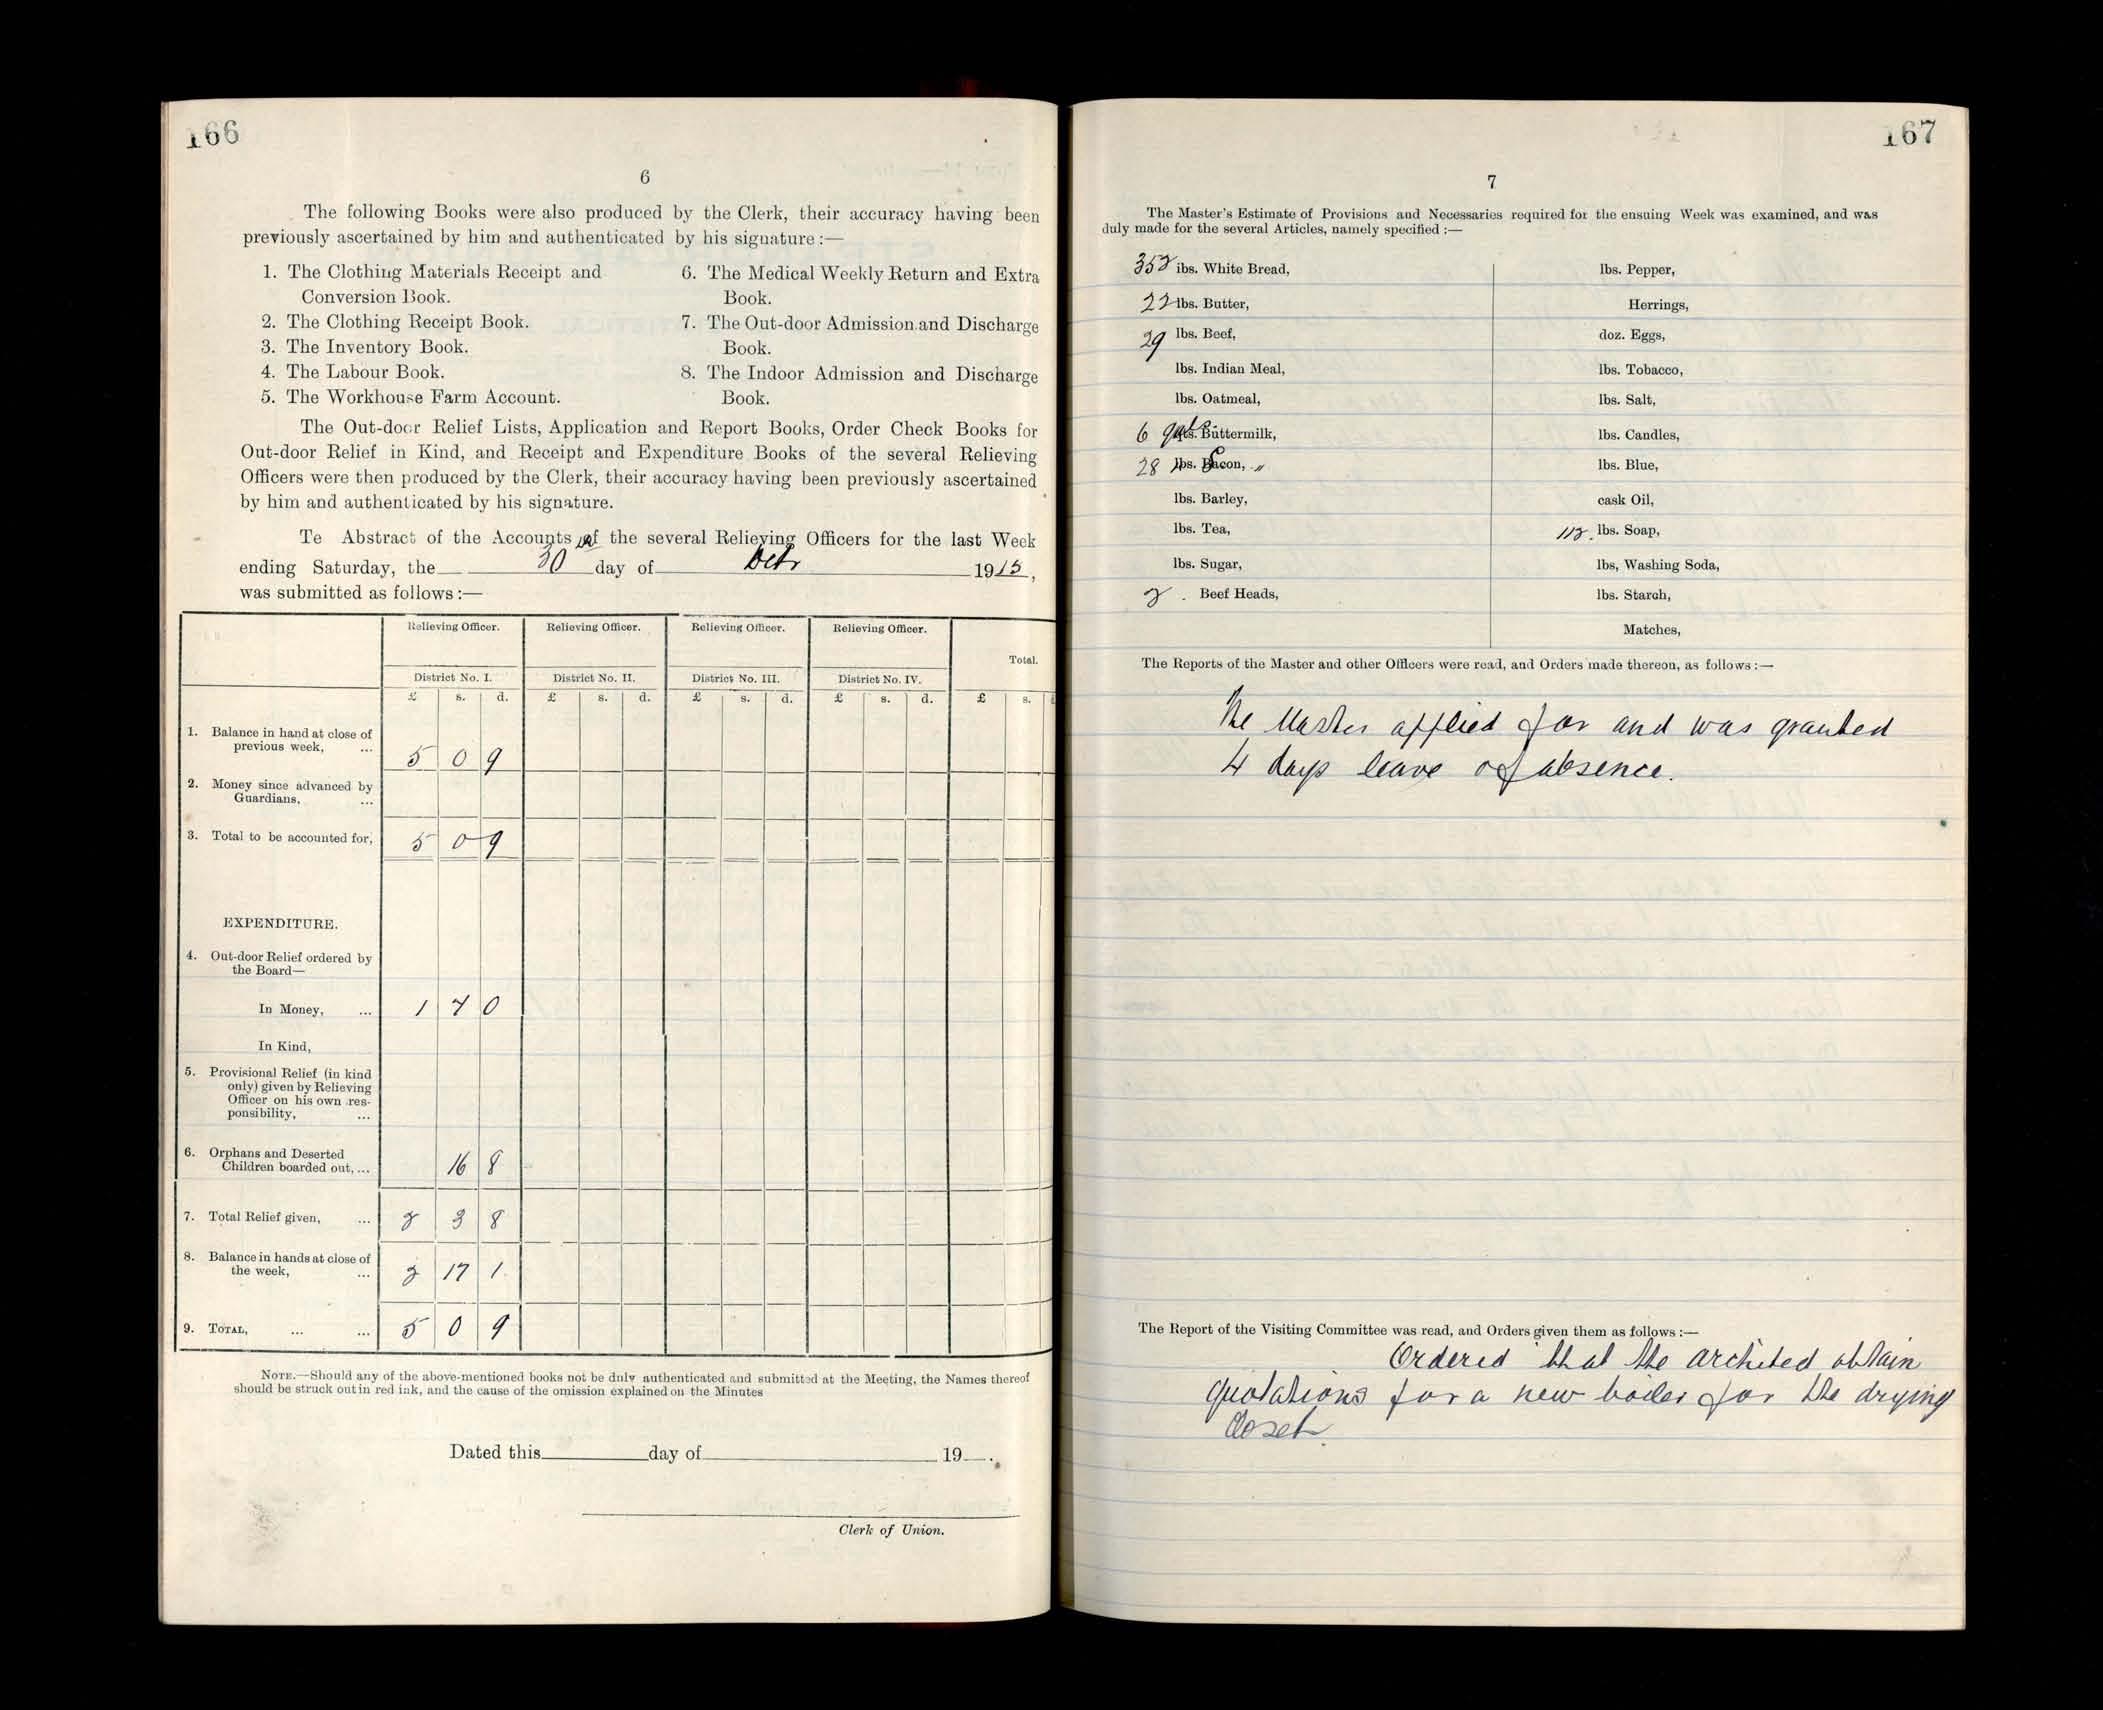 166
6
The following Books were also produced by the Clerk, their accuracy having been
previously ascertained by him and authenticated by his signature :—
1. The Clothing Materials Receipt and
Conversion Book.
2. The Clothing Receipt Book.
3. The Inventory Book.
4. The Labour Book.
5. The Workhouse Farm Account.
6. The Medical Weekly Return and Extra
Book.
7. The Out-door Admission and Discharge
Book.
8. The Indoor Admission and Discharge
Book.
The Out-door Relief Lists, Application and Report Books, Order Check Books for
Out-door Relief in Kind, and Receipt and Expenditure Books of the several Relieving
Officers were then produced by the Clerk, their accuracy having been previously ascertained
by him and authenticated by his signature.
Te Abstract of the Accounts of the several Relieving Officers for the last Week
ending Saturday, the 30 day of Octr 1915,
was submitted as follows :—
Relieving Officer. Relieving Officer. Relieving Officer. Relieving Officer.
Total.
District No. I. District No. II. District No. III. District No. IV.
£ s. d. £ s. d. £ s. d. £ s. d. £ s.
1. Balance in hand at close of
previous week, ... 5 0 9
2. Money since advanced by
Guardians, ...
3. Total to be accounted for, 5 0 9
EXPENDITURE.
4. Out-door Relief ordered by
the Board—
In Money, ... 1 7 0
In Kind,
5. Provisional Relief (in kind
only) given by Relieving
Officer on his own res-
ponsibility, ...
6. Orphans and Deserted
Children boarded out, ... 16 8
7. Total Relief given, ... 2 3 8
8. Balance in hands at close of
the week, ... 2 17 1
9. TOTAL, ... ... 5 0 9
NOTE.—Should any of the above-mentioned books not be duly authenticated and submitted at the Meeting, the Names thereof
should be struck out in red ink, and the cause of the omission explained on the Minutes
Dated this day of 19 .
Clerk of Union.
167
7
The Master's Estimate of Provisions and Necessaries required for the ensuing Week was examined, and was
duly made for the several Articles, namely specified :—
352 lbs. White Bread,
22 lbs. Butter,
29 lbs. Beef,
lbs. Indian Meal,
lbs. Oatmeal,
6 qts. Buttermilk,
28 lbs. Bacon, "
lbs. Barley,
lbs. Tea,
lbs. Sugar,
2 Beef Heads,
lbs. Pepper,
Herrings,
doz. Eggs,
lbs. Tobacco,
lbs. Salt,
lbs. Candles,
lbs. Blue,
cask Oil,
112 lbs. Soap,
lbs, Washing Soda,
lbs. Starch,
Matches,
The Reports of the Master and other Officers were read, and Orders made thereon, as follows :—
The Master applied for and was granted
4 days leave of absence.
The Report of the Visiting Committee was read, and Orders given them as follows :—
Ordered that the architect obtain
quotations for a new boiler for the drying
closet.